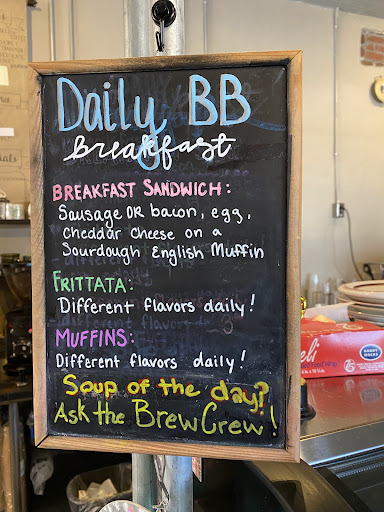 Daily BB
breakfast
BREAKFAST SANDWICH:
Sausage OR bacon, egg,
Cheddar Cheese on a
Sourdough English Muffin
FRITTATA:
Different flavors daily!
MUFFINS:
Different flavors daily!
Soup of the day?
Ask the Brew Crew!
eli